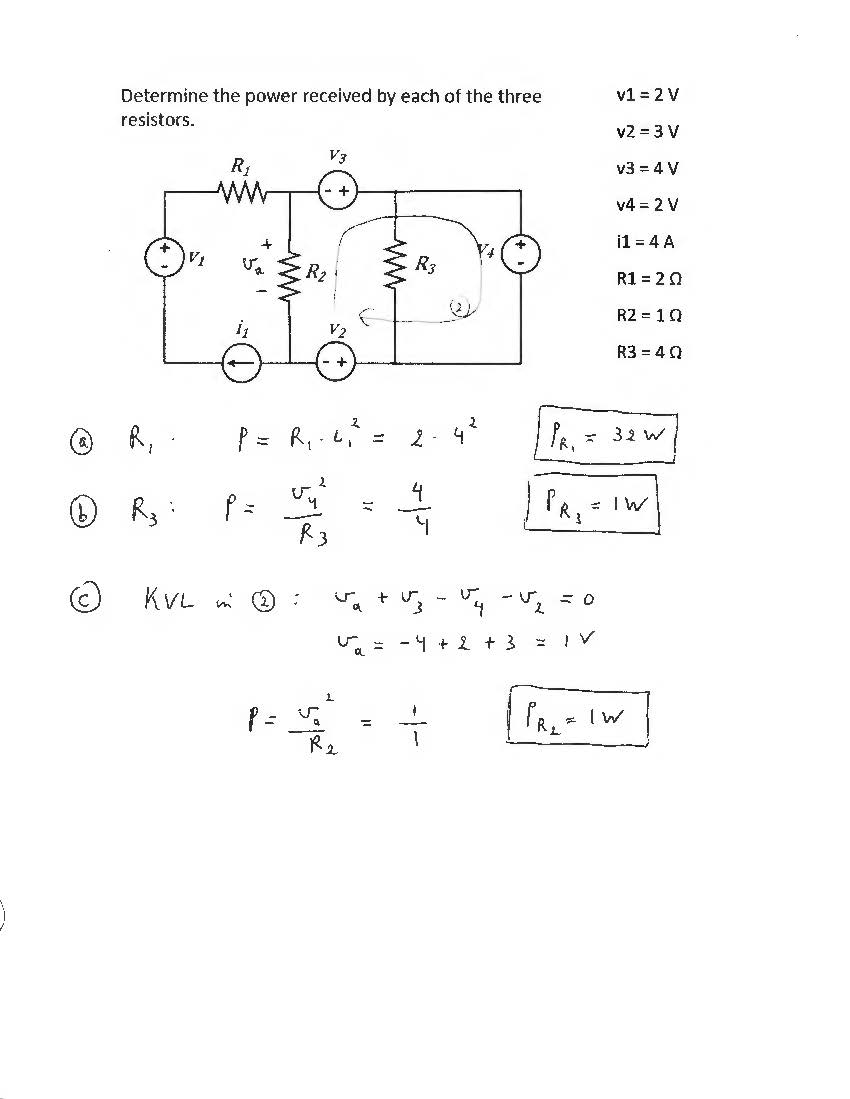 Determine the power received by each of the three
resistors.
v1 = 2 V
v2 = 3 V
v3 = 4 V
v4 = 2 V
i1 = 4 A
R1 = 2 Ω
R2 = 1 Ω
R3 = 4 Ω
R₁
V₃
- +
+
-
V₁
+
υₐ
-
R₂
R₃
V₄
+
-
②
i₁
V₂
- +
ⓐ R₁ . P = R₁ · i₁² = 2 · 4² P_R₁ = 32 W
ⓑ R₃ : P = υ₄² / R₃ = 4 / 4 P_R₃ = 1 W
ⓒ KVL in ② : υₐ + υ₃ - υ₄ - υ₂ = 0
υₐ = -4 + 2 + 3 = 1 V
P = υₐ² / R₂ = 1 / 1 P_R₂ = 1 W